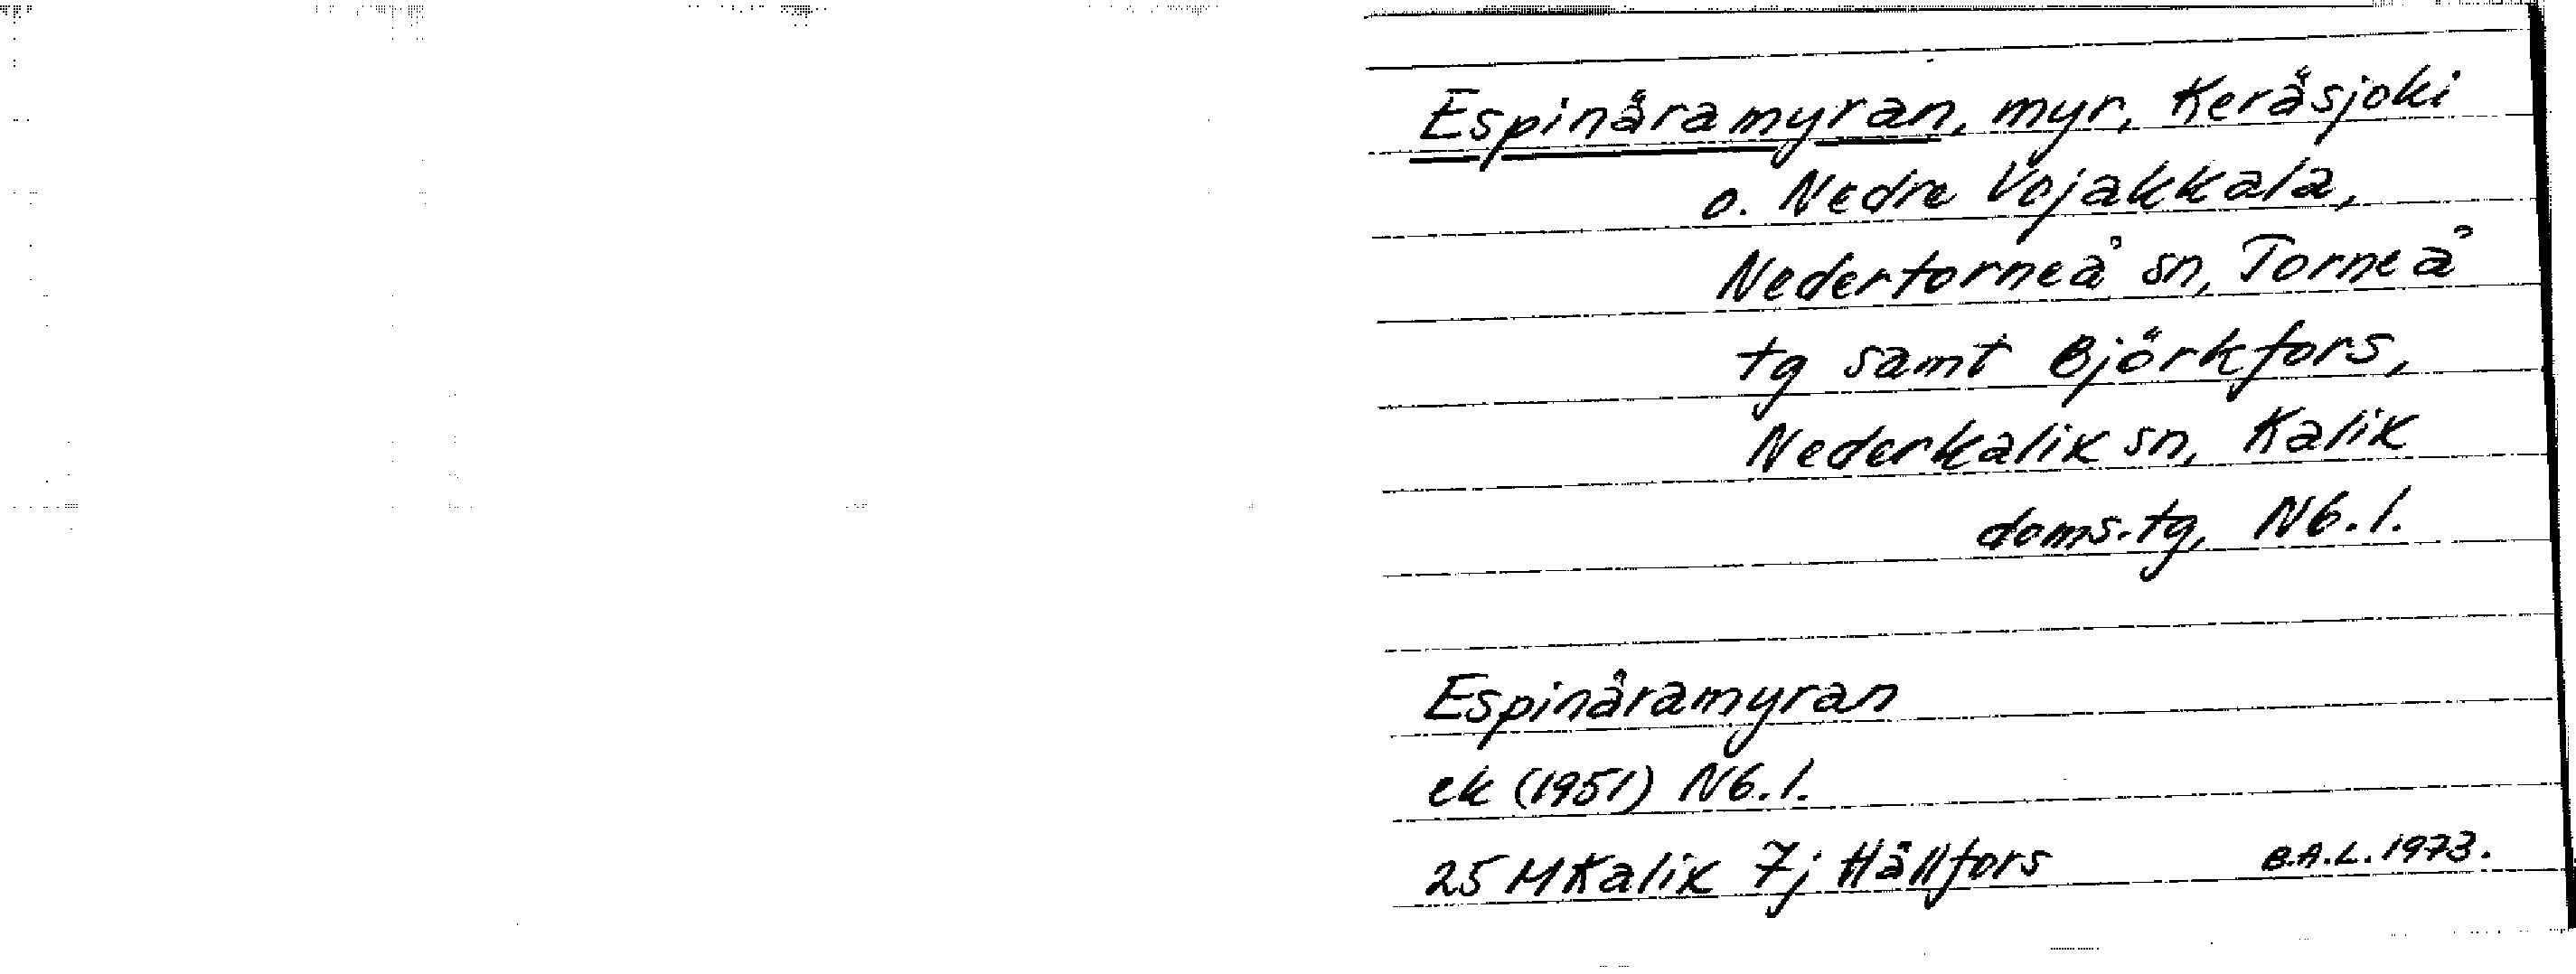 Espinäramyran, myr, Keräsjoki
o. Nedre Vojakkala,
Nedertorneå sn, Torneå
tg samt Björkfors,
Nederkalix sn, Kalix
doms.tg, Nb.l.
Espinäramyran
ek (1951) Nb.l.
25 M Kalix 7j Hällfors B.A.L. 1973.